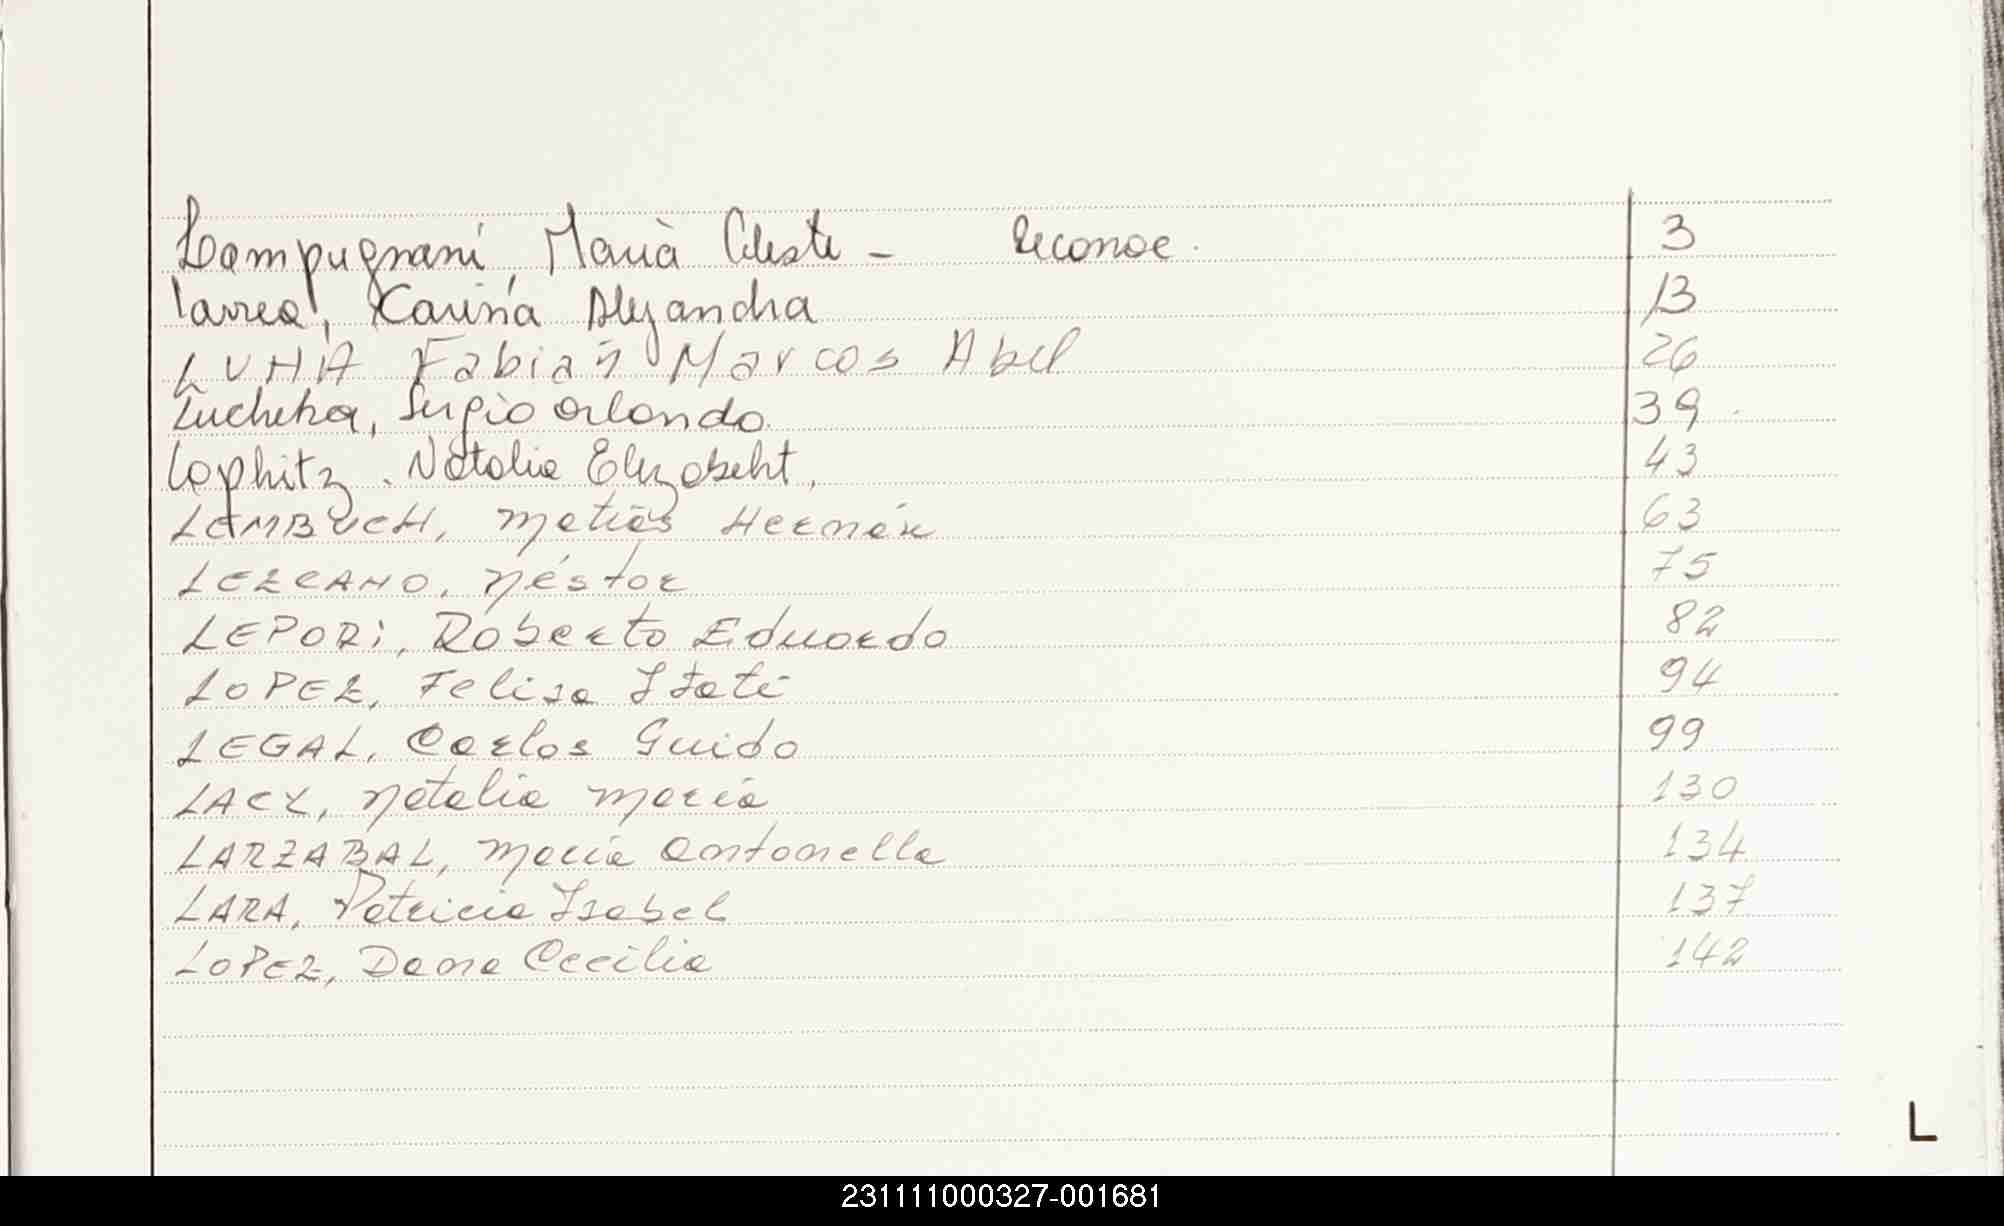 Lampugnani, Marià Celeste - Reconoc. 3
Larrea, Karina Alejandra 13
LUNA Fabián Marcos Abel 26
Sergio Orlando. 39
Natalia Elizabeht, 43
LAMBUCH, Matías Hernán 63
LEZCANO, Néstor 75
LEPORi, Roberto Eduardo 82
LOPEZ, Felisa Itatí 94
LEGAL, Carlos Guido 99
LACY, Natalia María 130
LARZABAL, María Antonella 134
LARA, Patricia Isabel 137
LOPEZ, Dana Cecilia 142
L
231111000327-001681